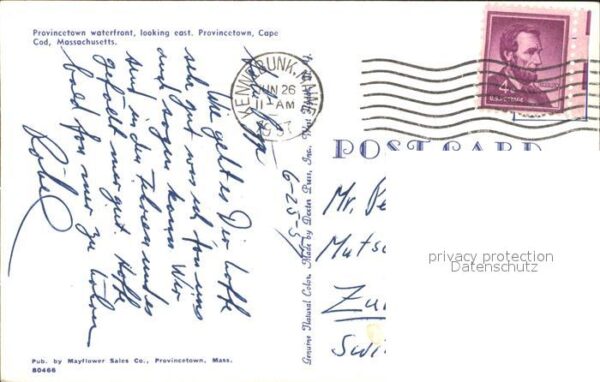 Provincetown waterfront, looking east. Provincetown, Cape
Cod, Massachusetts.
KENNEBUNK, MAINE
JUN 26
11-AM
4¢
U.S. POSTAGE
6-25-57
Wie geht es Dir hoffe
sehr gut was ich von uns
auch sagen kann Wir
sind in den Ferien und es
gefällt mir gut. Hoffe
bald von mir zu hören
Genuine Natural Color. Made by Dexter Press, Inc.
POST CARD
Mr. Pe
Zu
Swi
privacy protection
Datenschutz
Pub. by Mayflower Sales Co., Provincetown, Mass.
80466